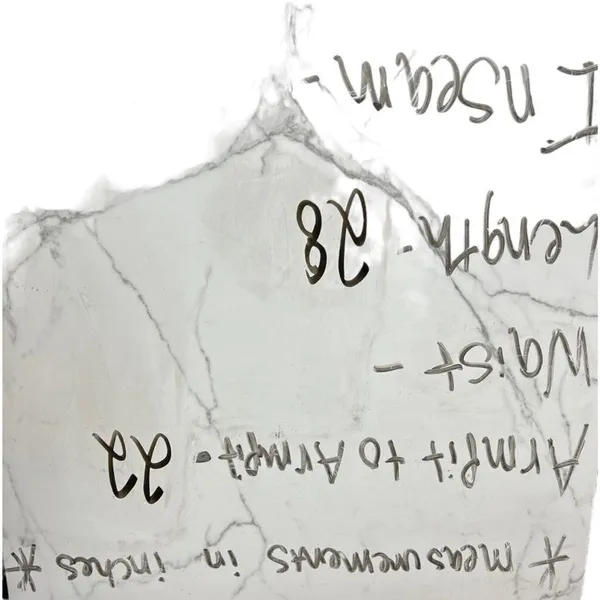 * measurements in inches *
Armpit to Armpit - 22
Waist -
Length - 28
Inseam -